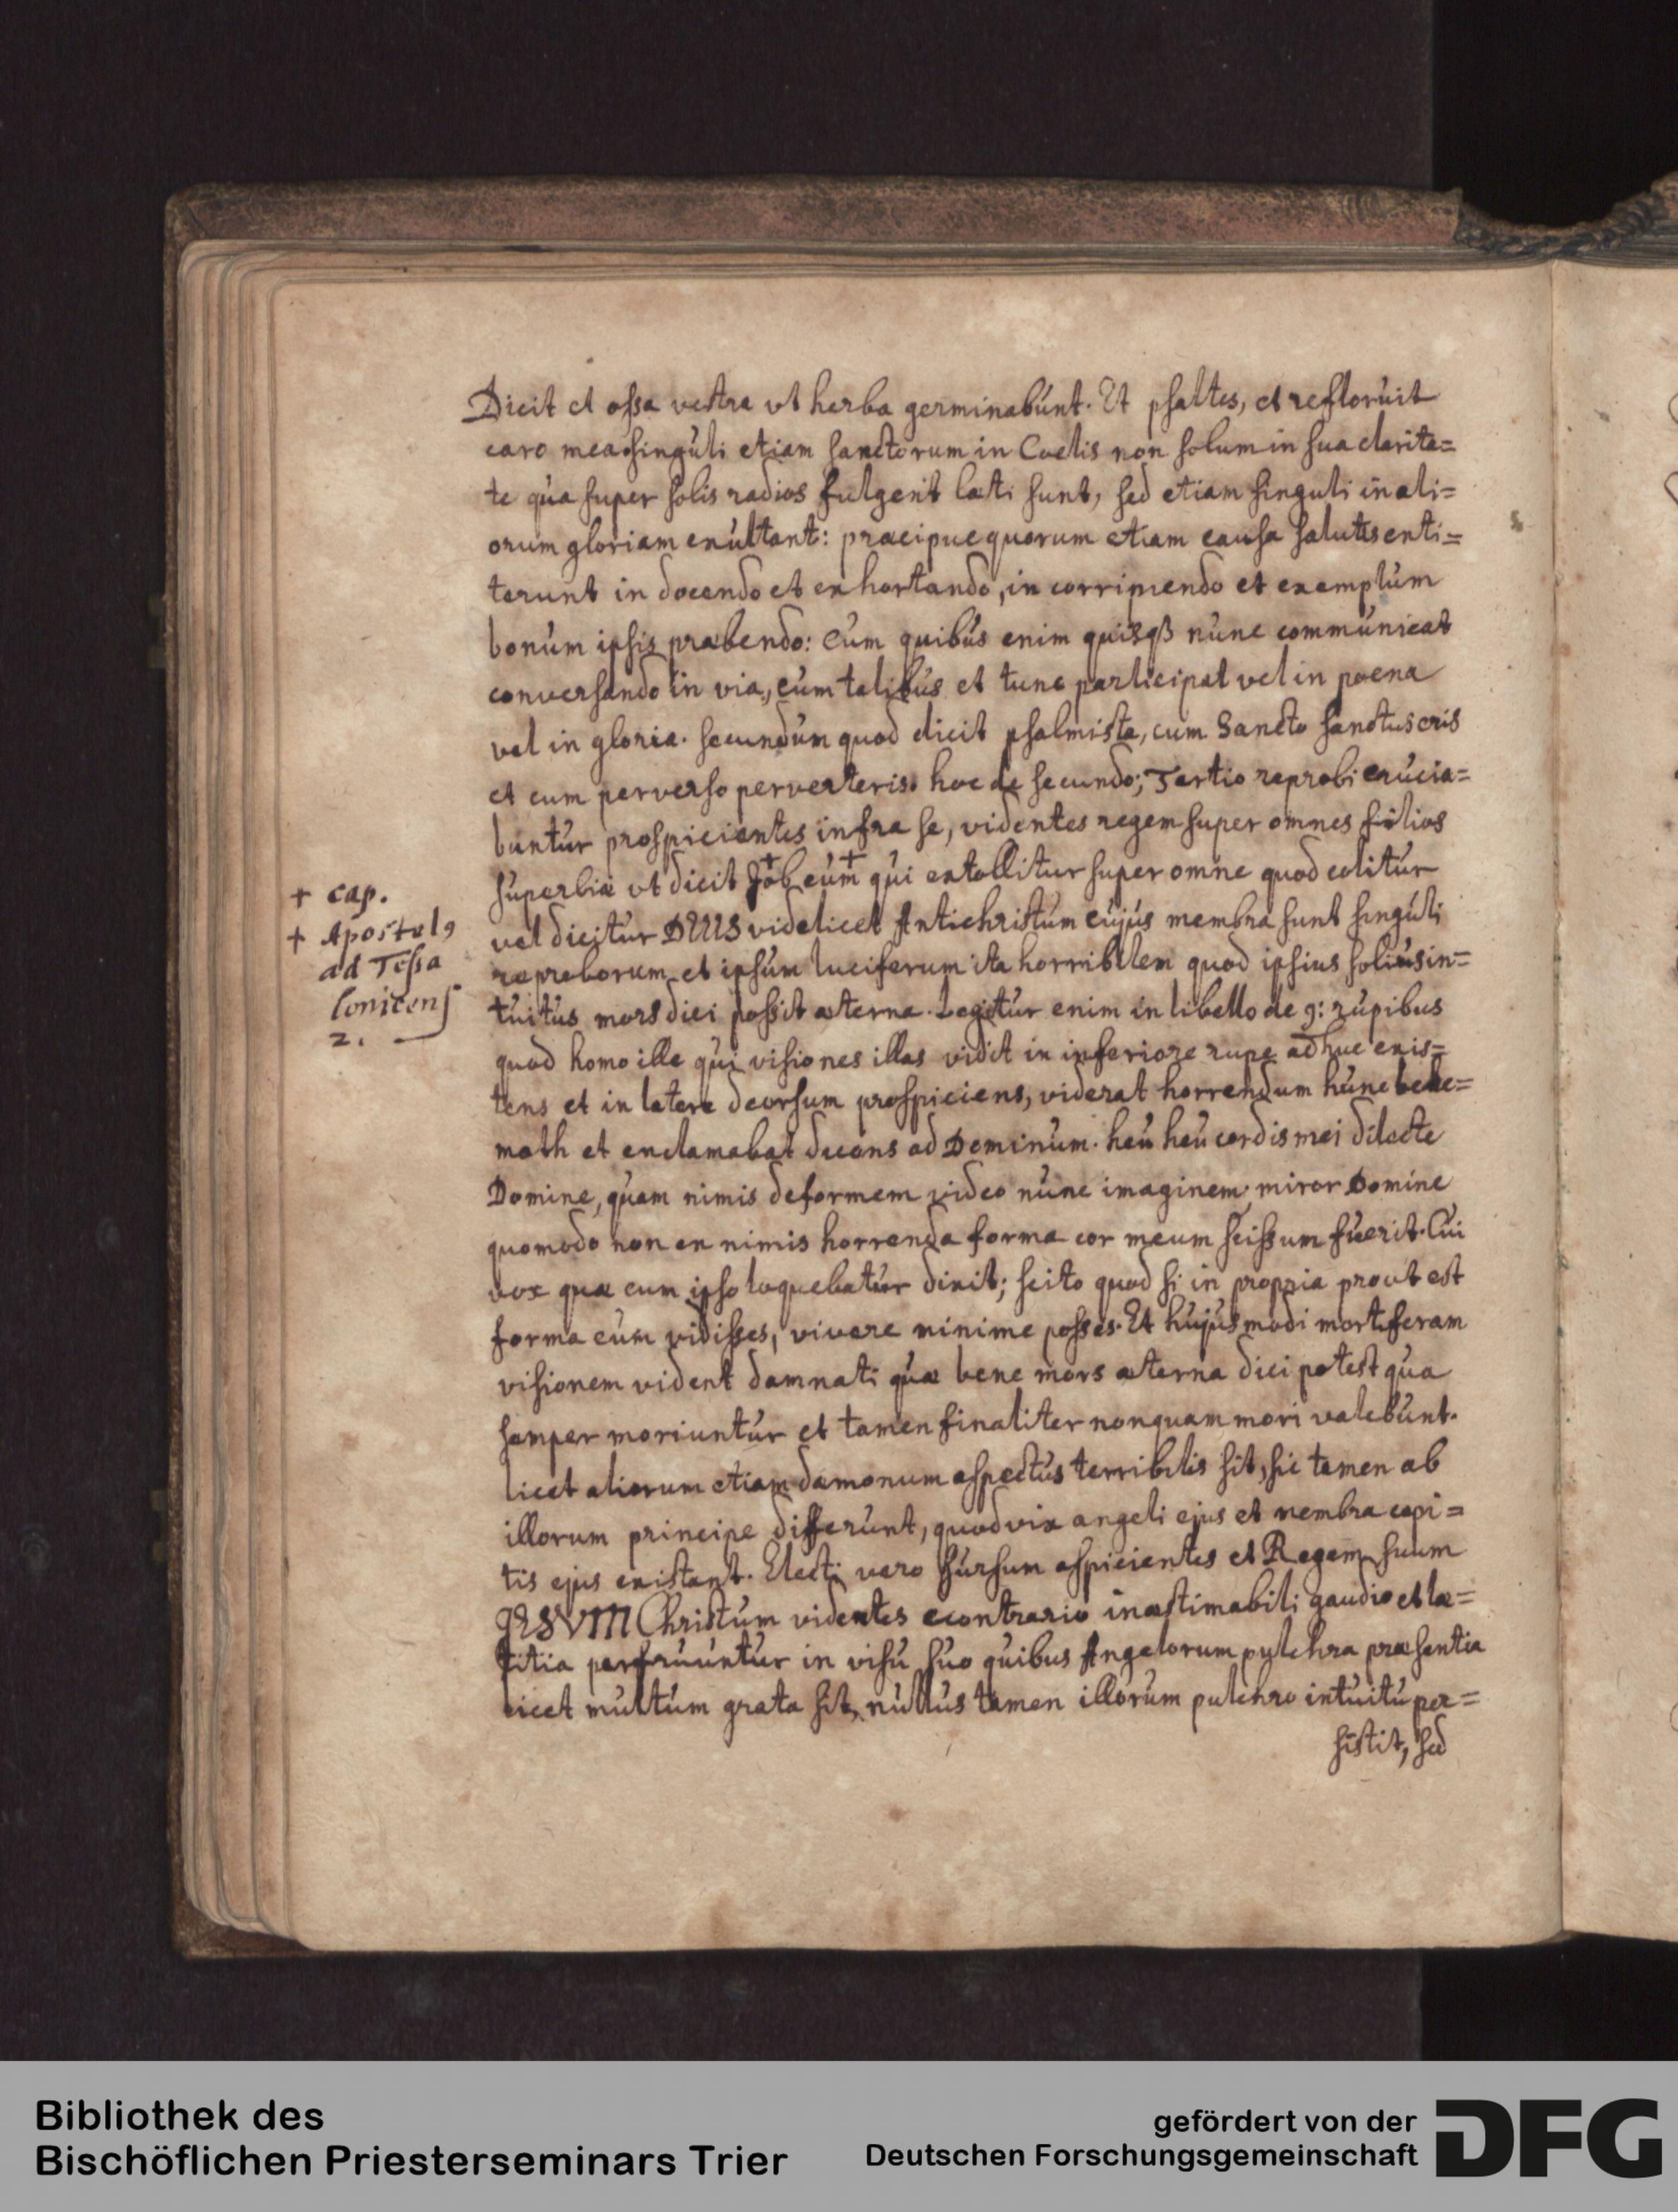 Dicit et ossa vestra ut herba germinabunt. Et psaltes, et refloruit
caro mea singuli etiam sanctorum in Coelis non solum in sua clarita=
te qua super solis radios fulgent læti sunt, sed etiam singuli in ali=
orum gloriam exultant: præcipue quorum etiam causa salutis enti=
terunt in docendo et exhortando, in corripiendo et exemplum
bonum ipsis præbendo: Cum quibus enim quisqß nunc communicat
conversando in via, cum talibus et tunc participat vel in poena
vel in gloria. secundum quod dicit psalmista, cum Sancto sanctus eris
et cum perverso perverteris. hoc de secundo; Tertio reprobi crucia=
buntur prospicientes infra se, videntes regem super omnes filios
superbiæ vt dicit Job + eum + qui extollitur super omne quod colitur
vel dicitur DEUS videlicet Antichristum cujus membra sunt singuli
reproborum et ipsum luciferum ita horribilem quod ipsius solius in=
tuitus mors dici possit æterna. Legitur enim in libello de 9: rupibus
quod homo ille qui visiones illas vidit in inferiore rupe adhuc exis=
tens et in latere deorsum prospiciens, viderat horrendum hunc behe=
moth et exclamabat dicens ad Dominum. heu heu cordis mei dilecte
Domine, quam nimis deformem video nunc imaginem miror Domine
quomodo non ex nimis horrenda forma cor meum scissum fuerit. Cui
vox quæ cum ipso loquebatur dixit; scito quod si in propria prout est
forma eum vidisses, vivere minime posses. Et hujusmodi mortiferam
visionem vident damnati quæ bene mors æterna dici potest qua
semper moriuntur et tamen finaliter nonquam mori valebunt.
licet aliorum etiam dæmonum aspectus terribilis sit, sic tamen ab
illorum principe differunt, quod vix angeli ejus et membra capi=
tis ejus existant. Electi vero sursum aspicientes et Regem suum
JESVM Christum videntes econtrario inæstimabili gaudio et læ=
titia perfruuntur in visu suo quibus Angelorum pulchra præsentia
licet multum grata sit, nullus tamen illorum pulchro intuitu per=
sistit, sed
+ cap.
+ Apostol9
ad Tessa
lonicens
2.
Bibliothek des
Bischöflichen Priesterseminars Trier
gefördert von der
Deutschen Forschungsgemeinschaft
DFG